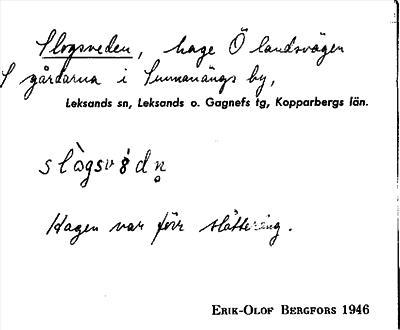 Slogsveden, hage Ö landsvägen
S gårdarna i Sunnanängs by,
Leksands sn, Leksands o. Gagnefs tg, Kopparbergs län.
slògsvèdn̥
Hagen var förr slåtteräng.
ERIK-OLOF BERGFORS 1946